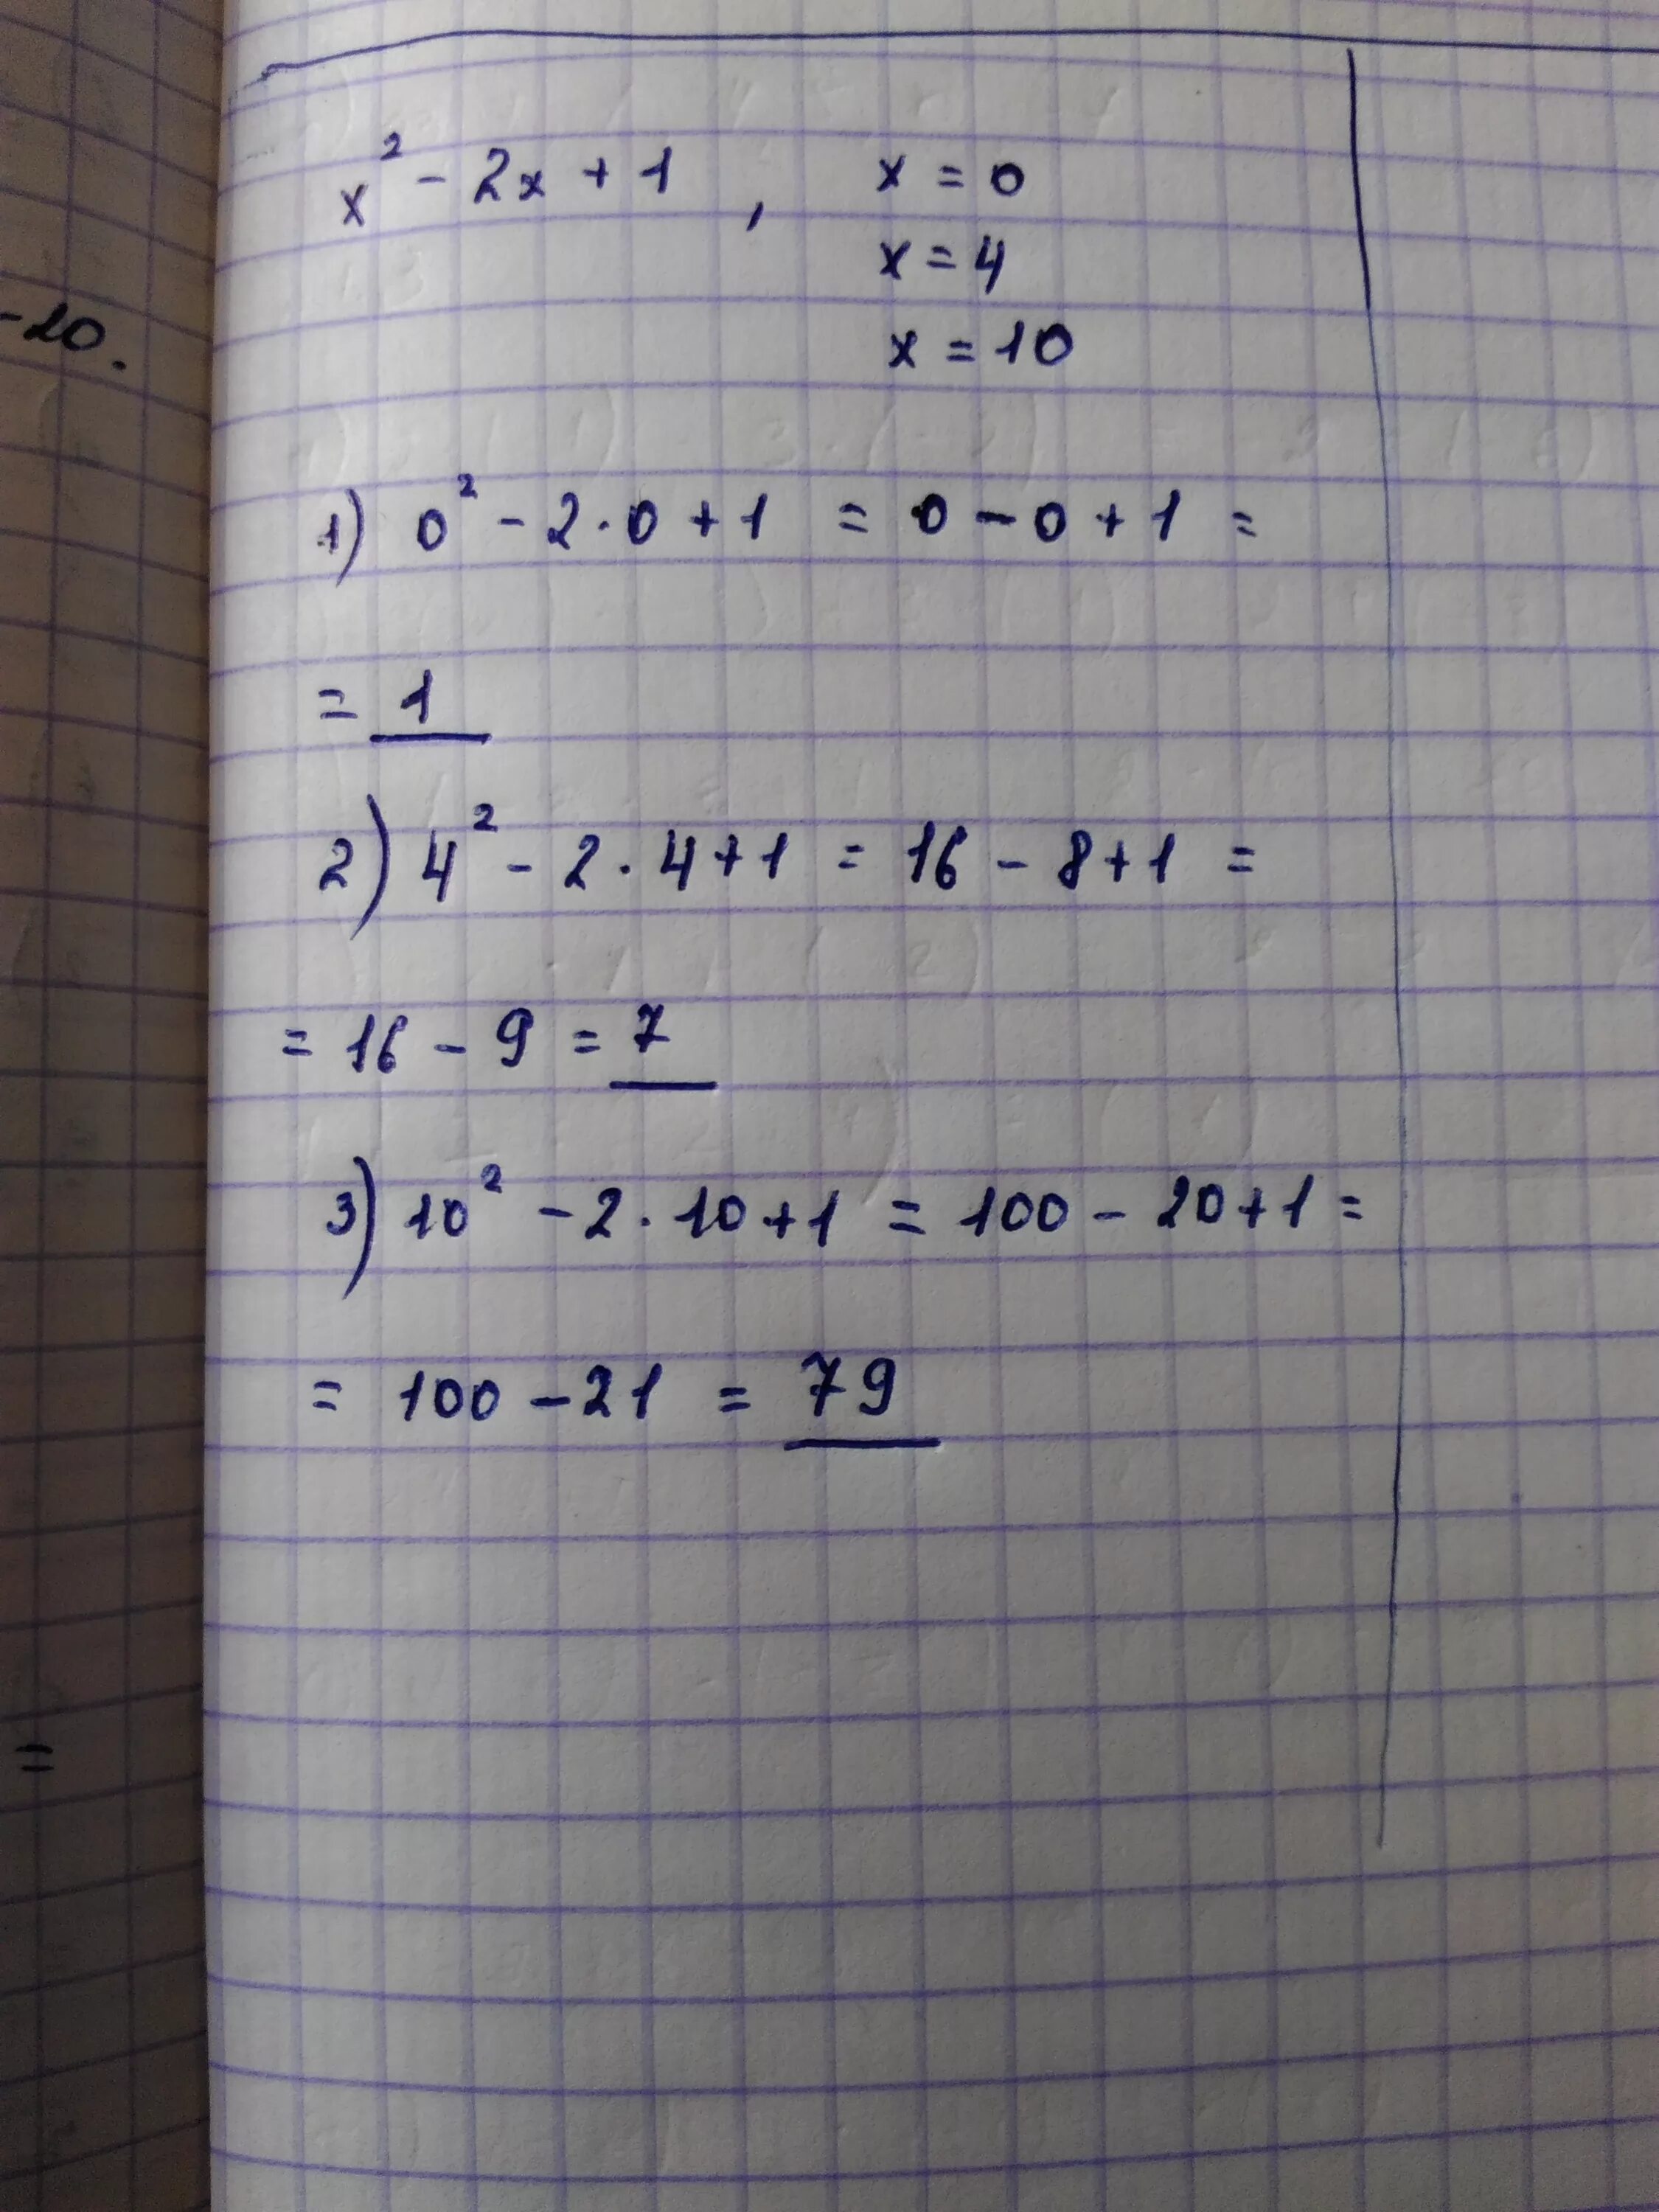 x² - 2x + 1 , x = 0
x = 4
x = 10
-20.
1) 0² - 2 · 0 + 1 = 0 - 0 + 1 =
= 1
2) 4² - 2 · 4 + 1 = 16 - 8 + 1 =
= 16 - 9 = 7
3) 10² - 2 · 10 + 1 = 100 - 20 + 1 =
= 100 - 21 = 79
=